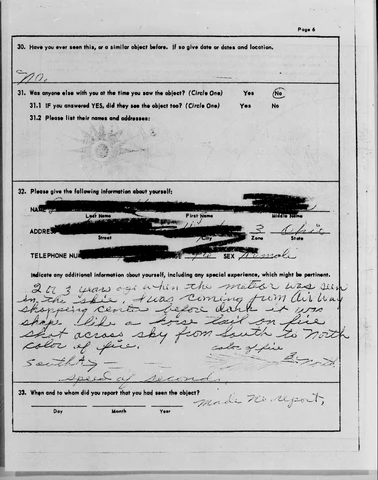 Page 6
30. Have you ever seen this, or a similar object before. If so give date or dates and location.
No.
31. Was anyone else with you at the time you saw the object? (Circle One) Yes No
31.1 If you answered YES, did they see the object too? (Circle One) Yes No
31.2 Please list their names and addresses:
32. Please give the following information about yourself:
NAME
Last Name First Name Middle Name
ADDRESS 3 Ohio
Street City Zone State
TELEPHONE NU SEX Female
Indicate any additional information about yourself, including any special experience, which might be pertinent.
2 or 3 years ago when the meteor was seen
in the skie, I was coming from Air Way
shopping center before dark it was
shape like a horse tail on fire
shot across sky from South to North
color of fire. color of fire
South North
speed of second.
33. When and to whom did you report that you had seen the object?
Made no report,
Day Month Year